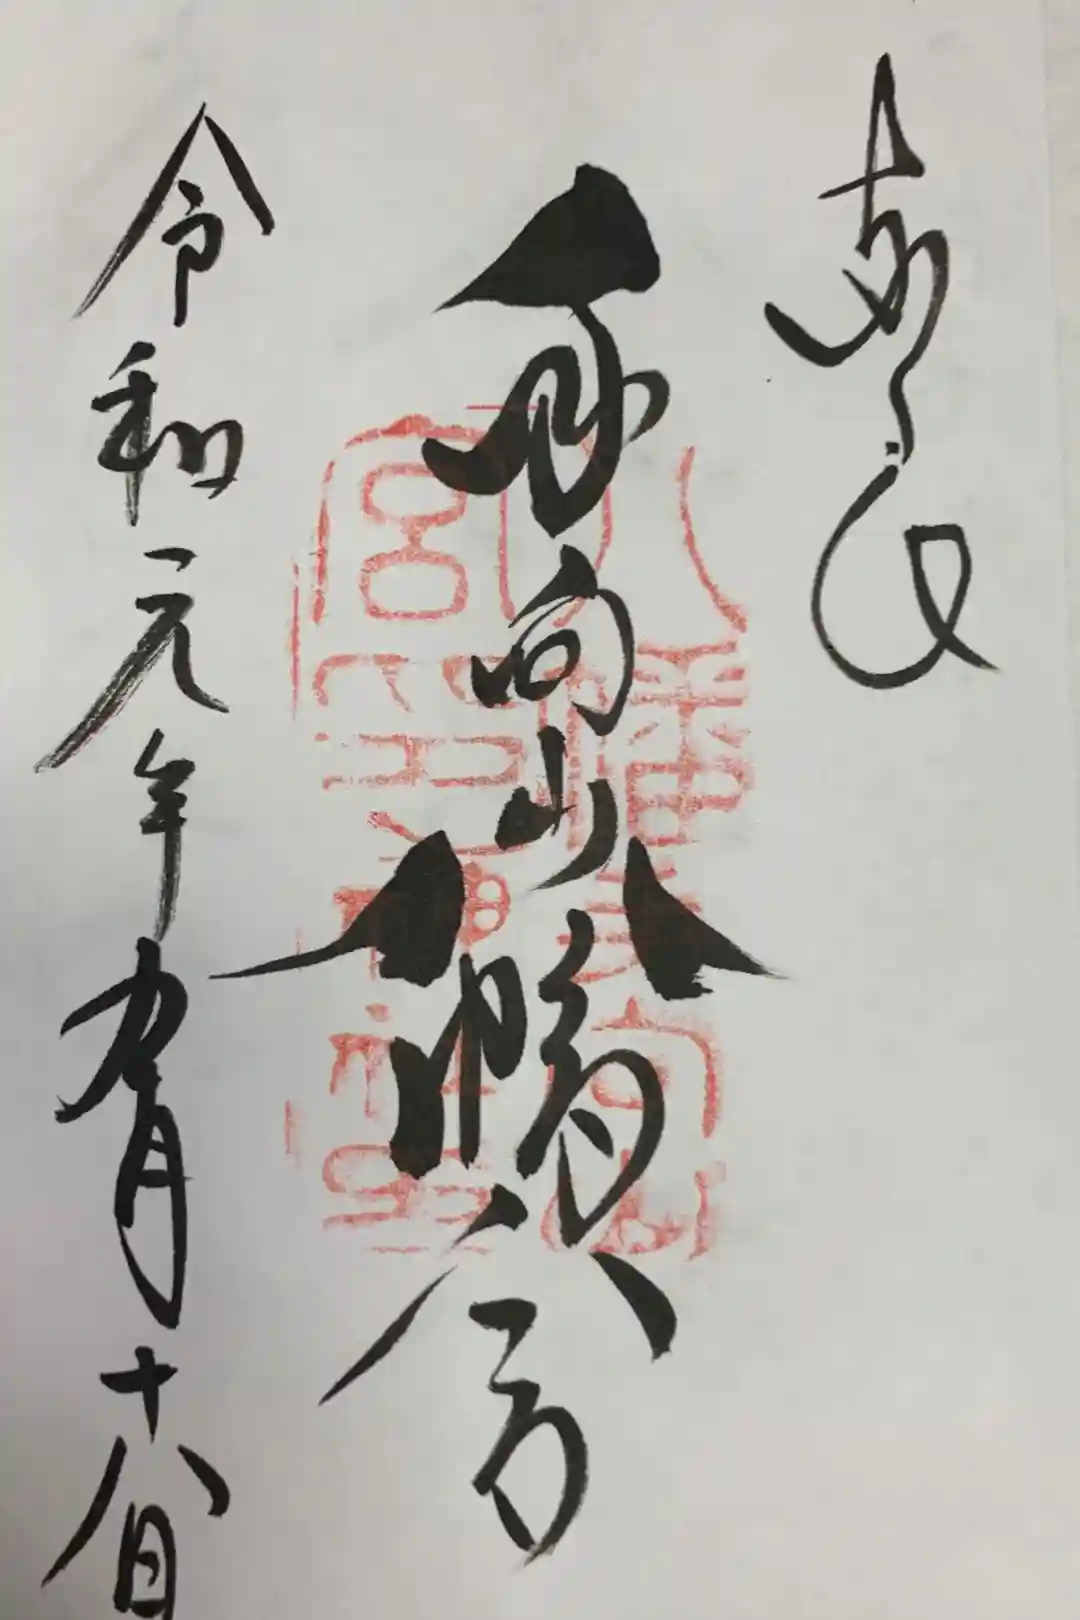 奉拝
手向山八幡宮
令和元年九月十八日